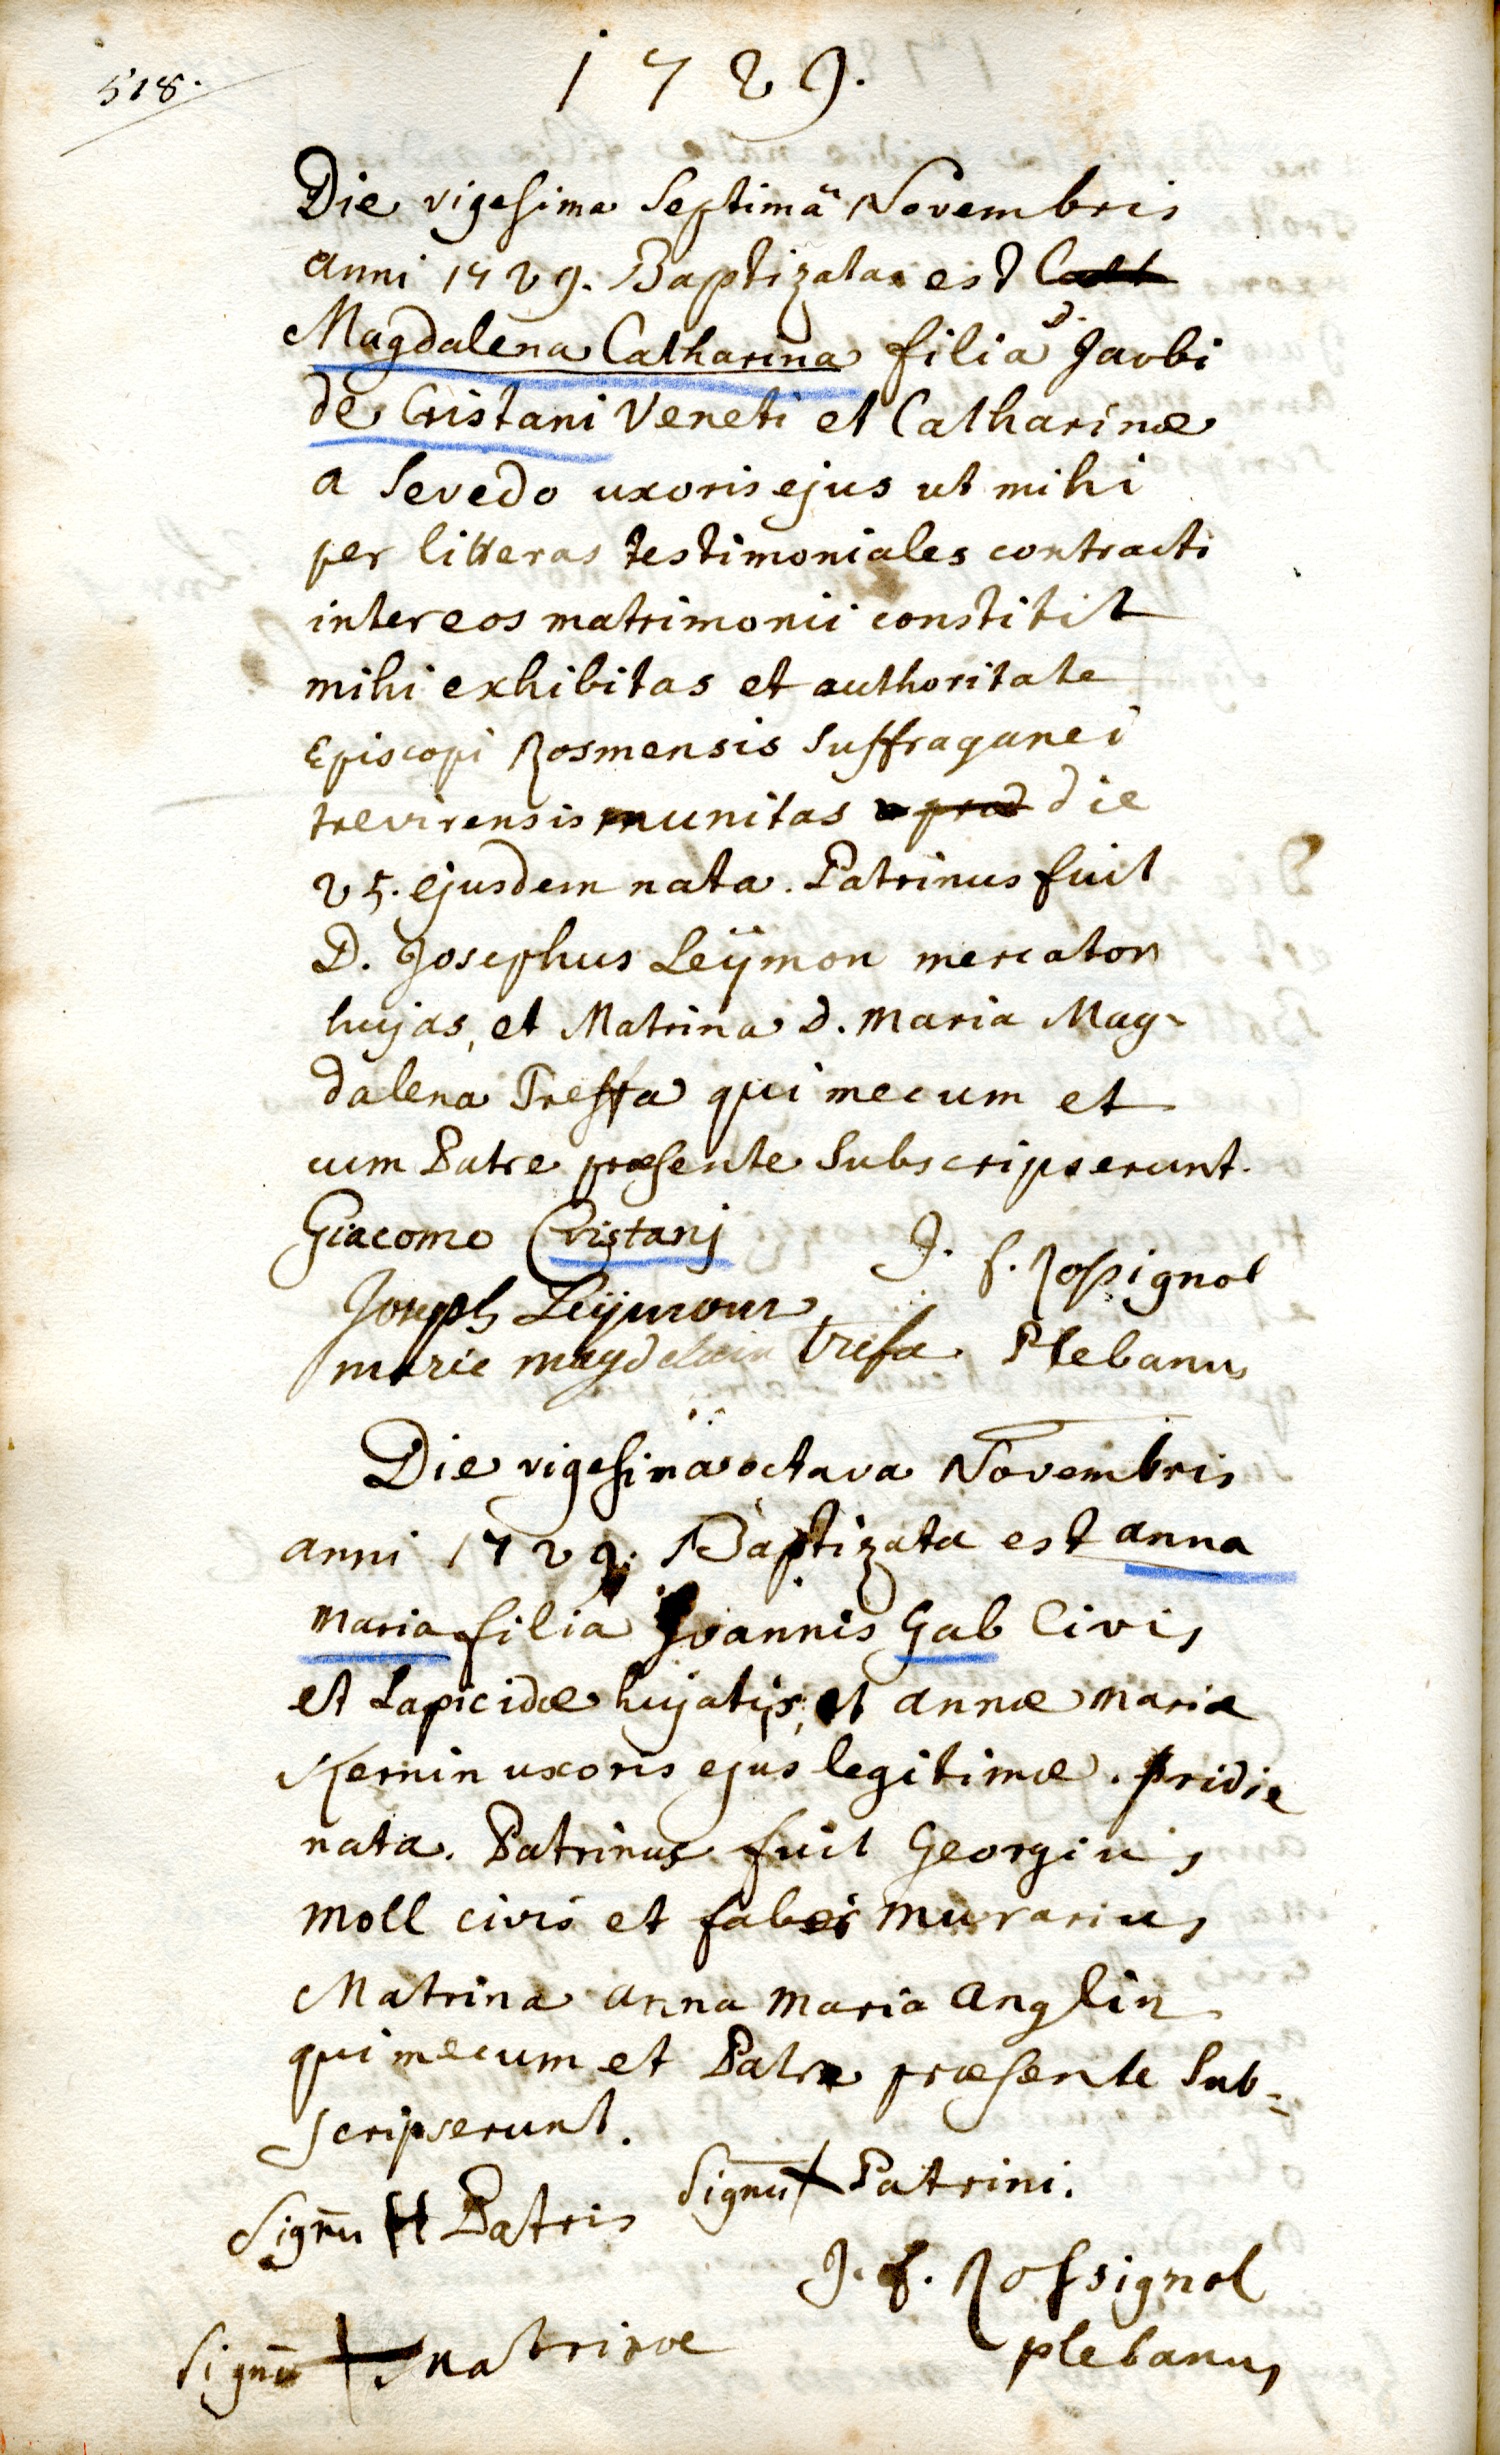 518.
1729.
Die vigesima Septima Novembris
anni 1729. Baptizata est Cath
Magdalena Catharina filia D. Jacobi
de Cristani Veneti et Catharinæ
a Sevedo uxoris ejus ut mihi
per litteras testimoniales contracti
inter eos matrimonii constitit
mihi exhibitas et authoritate
Episcopi Rosmensis Suffraganei
trevirensis munitas die
25. ejusdem nata. Patrinus fuit
D. Josephus Leÿmon mercator
hujas, et Matrina D. Maria Mag-
dalena Tressa qui mecum et
cum Patre præsente Subscripserunt.
Giacomo Cristanj
J. f. Rossignol
Joseph Leÿmon
marie magdelain tresa Plebanus
Die vigesima octava Novembris
anni 1729. Baptizata est anna
maria filia Joannis Gab Civis
et Lapicidæ hujatis, et annæ mariæ
Kernin uxoris ejus legitimæ. pridie
nata. Patrinus fuit Georgius
Moll civis et faber murarius
Matrina anna maria Anglin
qui mecum et Patre præsente Sub=
scripserunt.
Signū H Patris Signū + Patrini.
J. f. Rossignol
Signū + Matrinæ plebanus